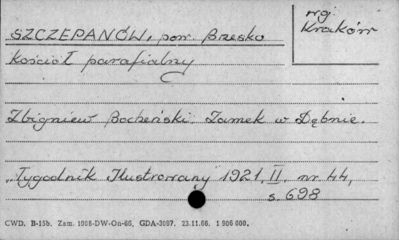 SZCZEPANÓW, pow. Brzesko
woj
Kraków
Kościół parafialny
Zbigniew Bocheński. Zamek w Dębnie.
„Tygodnik Ilustrowany 1921, II, nr 44,
s. 698
CWD. B-15b. Zam. 1008-DW-On-66, GDA-3087. 23.11.66. 1 900 000.